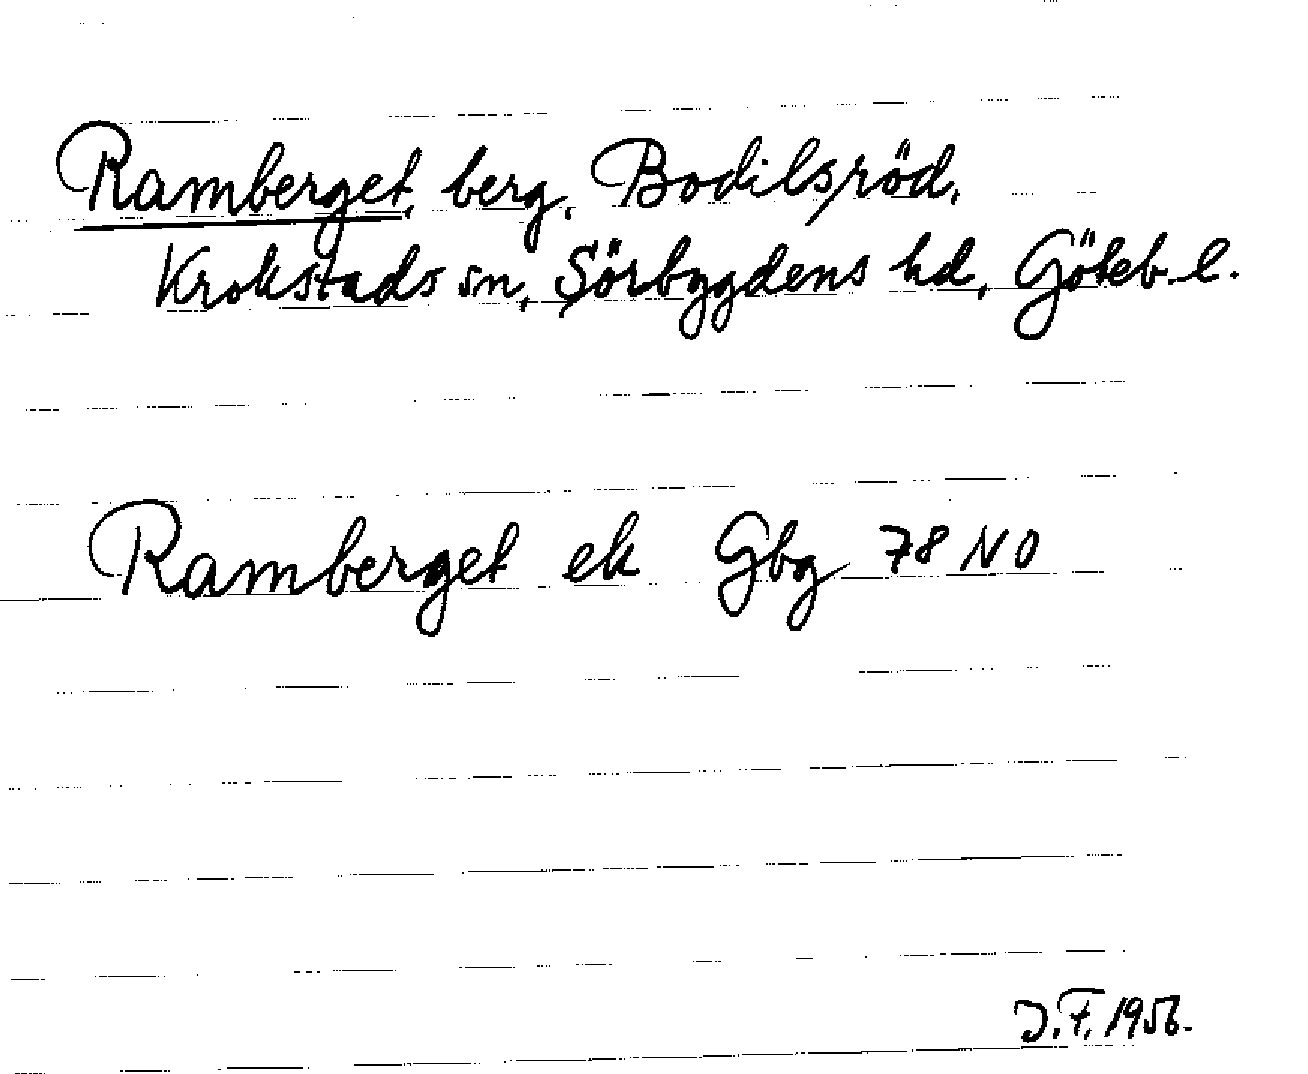 Ramberget, berg, Bodilsröd,
Krokstads sn, Sörbygdens hd, Göteb. l.
Ramberget ek Gbg 78 NO
J.F. 1956.